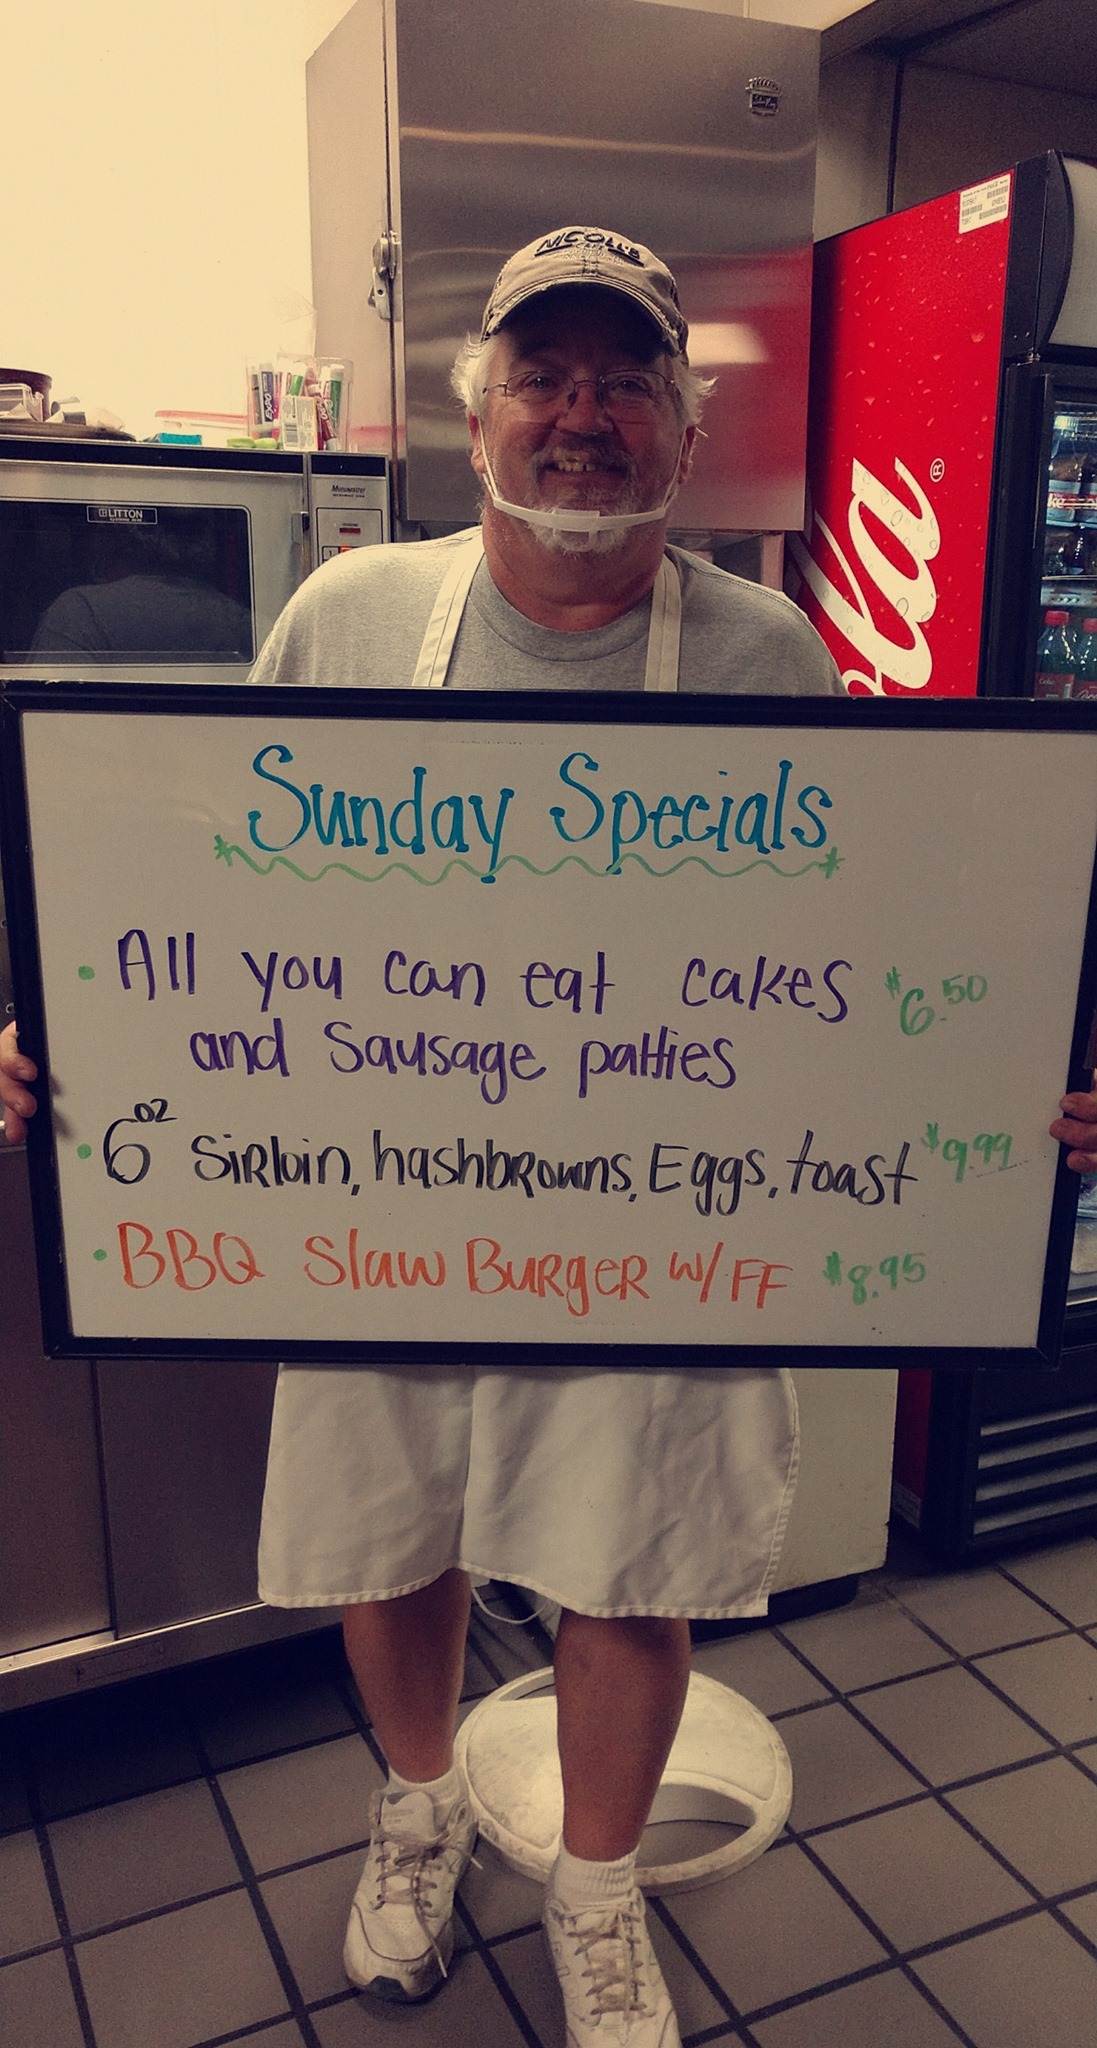 NICOLL'S
CAFE
EXPO
LITTON
la®
Sunday Specials
• All you can eat cakes $6.50
and Sausage patties
• 6oz Sirloin, hashbrowns, Eggs, toast $9.99
• BBQ Slaw Burger w/ FF $8.95